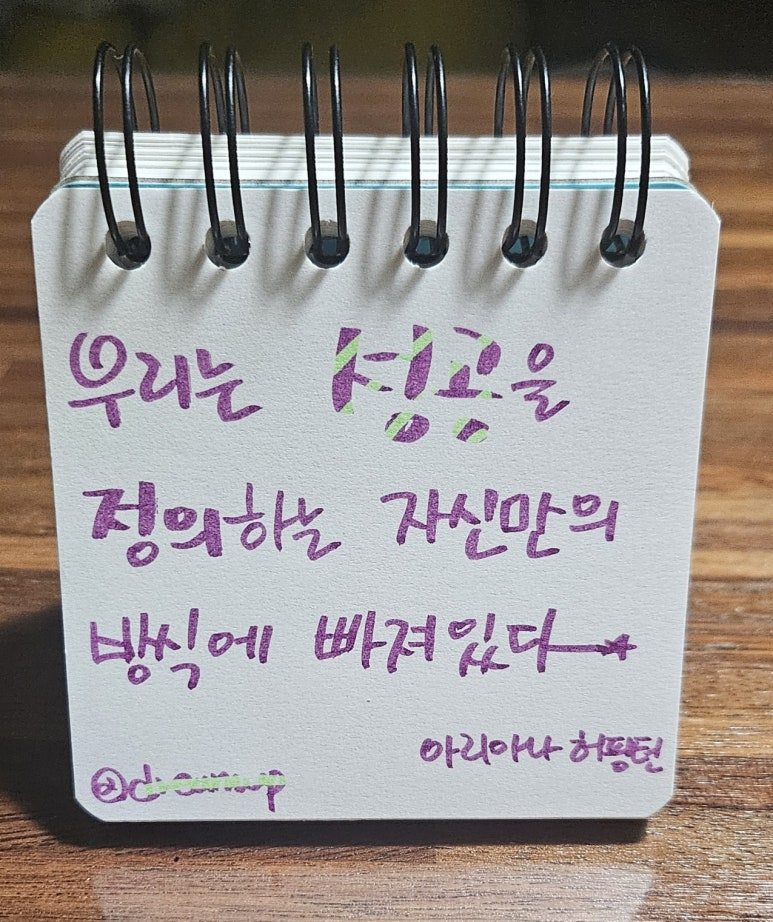 우리는 성공을
정의하는 자신만의
방식에 빠져있다
아리아나 허핑턴